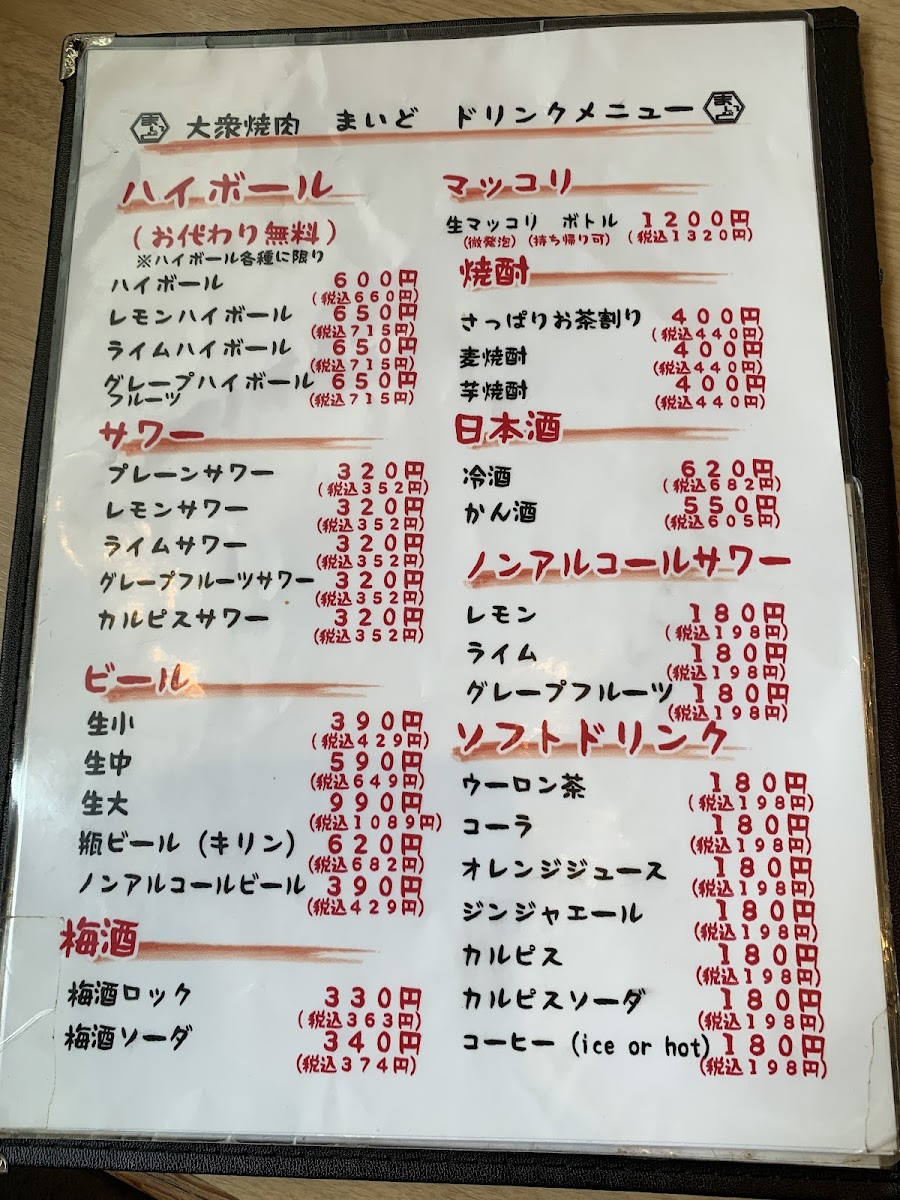 大衆焼肉 まいど ドリンクメニュー
ハイボール
(お代わり無料)
※ハイボール各種に限り
ハイボール 600円
(税込660円)
レモンハイボール 650円
(税込715円)
ライムハイボール 650円
(税込715円)
グレープハイボール 650円
フルーツ (税込715円)
サワー
プレーンサワー 320円
(税込352円)
レモンサワー 320円
(税込352円)
ライムサワー 320円
(税込352円)
グレープフルーツサワー 320円
(税込352円)
カルピスサワー 320円
(税込352円)
ビール
生小 390円
(税込429円)
生中 590円
(税込649円)
生大 990円
(税込1089円)
瓶ビール (キリン) 620円
(税込682円)
ノンアルコールビール 390円
(税込429円)
梅酒
梅酒ロック 330円
(税込363円)
梅酒ソーダ 340円
(税込374円)
マッコリ
生マッコリ ボトル 1200円
(微発泡) (持ち帰り可) (税込1320円)
焼酎
さっぱりお茶割り 400円
(税込440円)
麦焼酎 400円
(税込440円)
芋焼酎 400円
(税込440円)
日本酒
冷酒 620円
(税込682円)
かん酒 550円
(税込605円)
ノンアルコールサワー
レモン 180円
(税込198円)
ライム 180円
(税込198円)
グレープフルーツ 180円
(税込198円)
ソフトドリンク
ウーロン茶 180円
(税込198円)
コーラ 180円
(税込198円)
オレンジジュース 180円
(税込198円)
ジンジャエール 180円
(税込198円)
カルピス 180円
(税込198円)
カルピスソーダ 180円
(税込198円)
コーヒー (ice or hot) 180円
(税込198円)